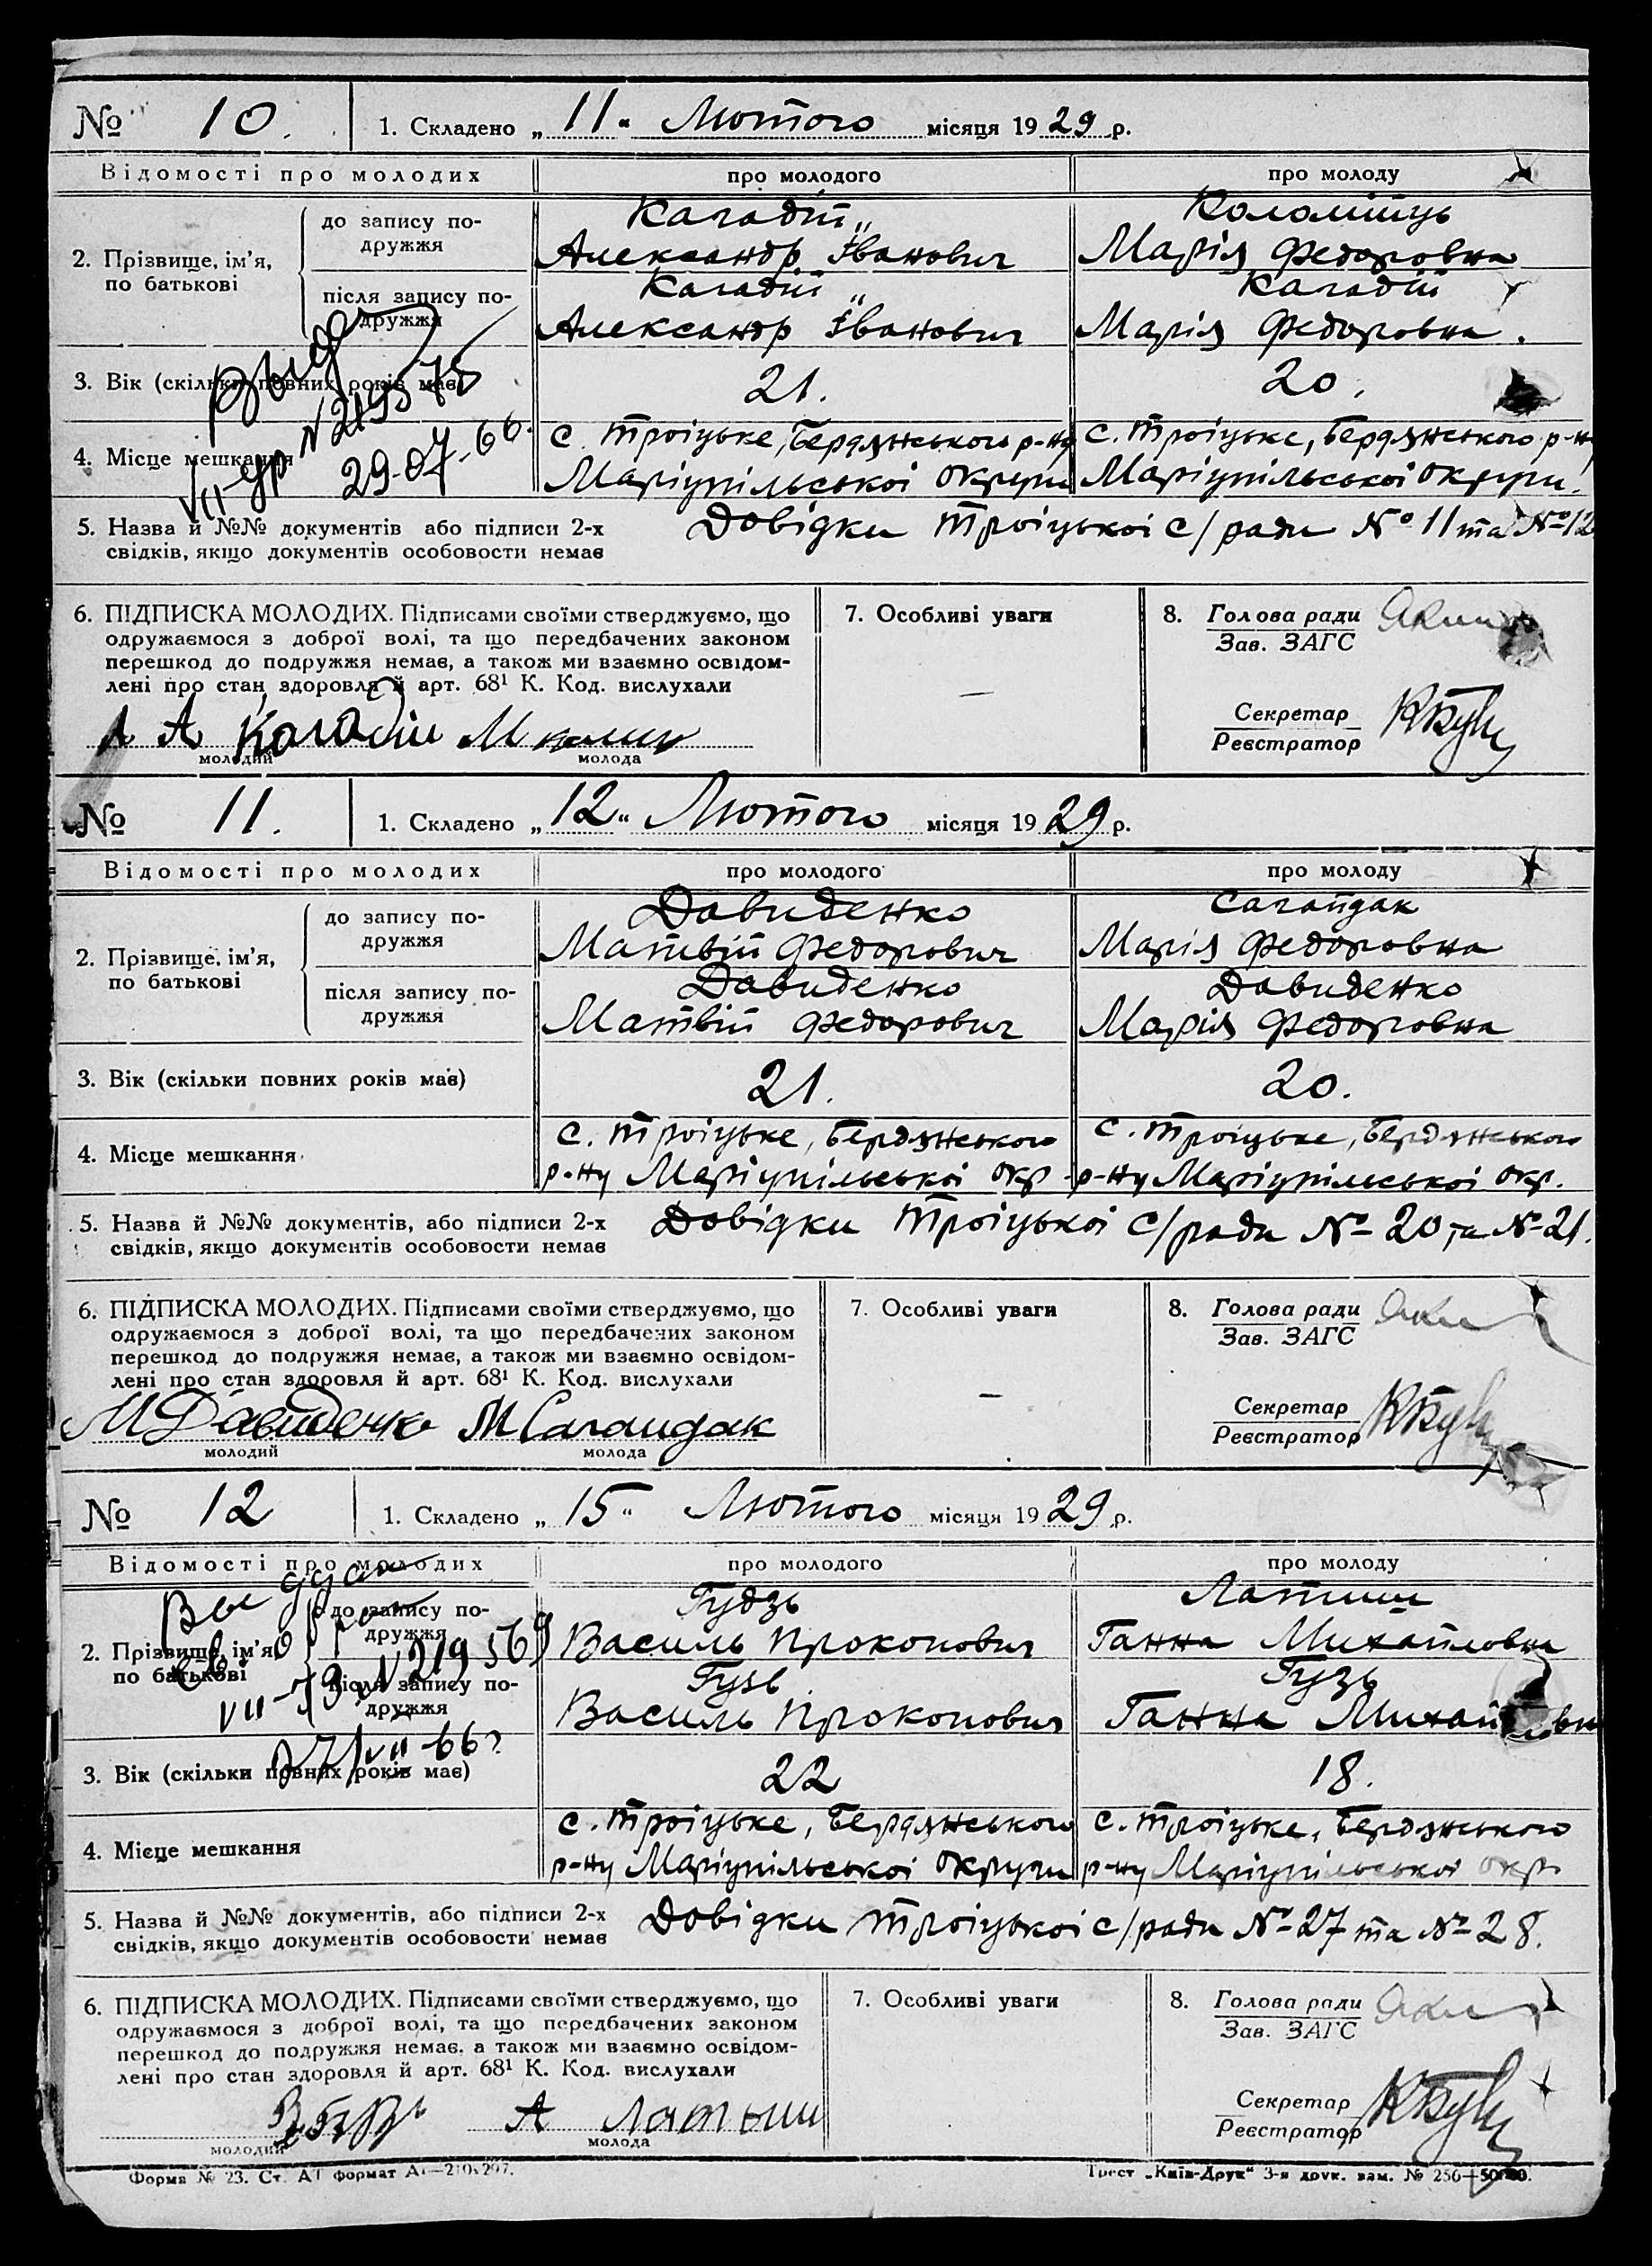 № 10. 1. Складено „11" Лютого місяця 1929 р.
Відомості про молодих про молодого про молоду
2. Прізвище, ім'я, по батькові
до запису по-
дружжя
Кагадій Коломієць
Александр Іванович Марія Федоровна
після запису по-
дружжя
Кагадій Кагадій
Александр Іванович Марія Федоровна.
3. Вік (скільки повних років має) 21. 20.
Выд
VII-др N 219575
29-07-66.
4. Місце мешкання
с. Троіцьке, Бердянського р-ну с. Троіцьке, Бердянського р-ну
Маріупільської Округи Маріупільської Округи.
5. Назва й №№ документів або підписи 2-х
свідків, якщо документів особовости немає
Довідки Троіцької с/ради № 11 та № 12
6. ПІДПИСКА МОЛОДИХ. Підписами своїми стверджуємо, що
одружаємося з доброї волі, та що передбачених законом
перешкод до подружжя немає, а також ми взаємно освідом-
лені про стан здоровля й арт. 68¹ К. Код. вислухали
А Кагадій
молодий молода
7. Особливі уваги
—
8. Голова ради
Зав. ЗАГС
Секретар
Реєстратор
№ 11. 1. Складено „12" Лютого місяця 1929 р.
Відомості про молодих про молодого про молоду
2. Прізвище, ім'я,
по батькові
до запису по-
дружжя
Давиденко Сагайдак
Матвій Федорович Марія Федоровна
після запису по-
дружжя
Давиденко Давиденко
Матвій Федорович Марія Федоровна
3. Вік (скільки повних років має) 21. 20.
4. Місце мешкання
с. Троіцьке, Бердянського с. Троіцьке, Бердянського
р-ну Маріупільської окр. р-ну Маріупільської окр.
5. Назва й №№ документів, або підписи 2-х
свідків, якщо документів особовости немає
Довідки Троіцької с/ради № 20 та № 21.
6. ПІДПИСКА МОЛОДИХ. Підписами своїми стверджуємо, що
одружаємося з доброї волі, та що передбачених законом
перешкод до подружжя немає, а також ми взаємно освідом-
лені про стан здоровля й арт. 68¹ К. Код. вислухали
М Давиденко М Сагаидак
молодий молода
7. Особливі уваги
—
8. Голова ради
Зав. ЗАГС
Секретар
Реєстратор
№ 12 1. Складено „15" Лютого місяця 1929 р.
Відомості про молодих про молодого про молоду
2. Прізвище, ім'я,
по батькові
до запису по-
дружжя
Гудзь Латиш
Василь Прокопович Ганна Михайловна
після запису по-
дружжя
Гузь Гузь
Василь Прокопович Ганна Михайловна
N 219569
3. Вік (скільки повних років має) 22 18.
27/VII-66г
4. Місце мешкання
с. Троіцьке, Бердянського с. Троіцьке, Бердянського
р-ну Маріупільської округи р-ну Маріупільської окр.
5. Назва й №№ документів, або підписи 2-х
свідків, якщо документів особовости немає
Довідки Троіцької с/ради № 27 та № 28.
6. ПІДПИСКА МОЛОДИХ. Підписами своїми стверджуємо, що
одружаємося з доброї волі, та що передбачених законом
перешкод до подружжя немає, а також ми взаємно освідом-
лені про стан здоровля й арт. 68¹ К. Код. вислухали
А Латыш
молодий молода
7. Особливі уваги
8. Голова ради
Зав. ЗАГС
Секретар
Реєстратор
Форма № 23. Ст. А1 формат А4—210×297. Трест „Київ-Друк" 3-я друк. зам. № 256